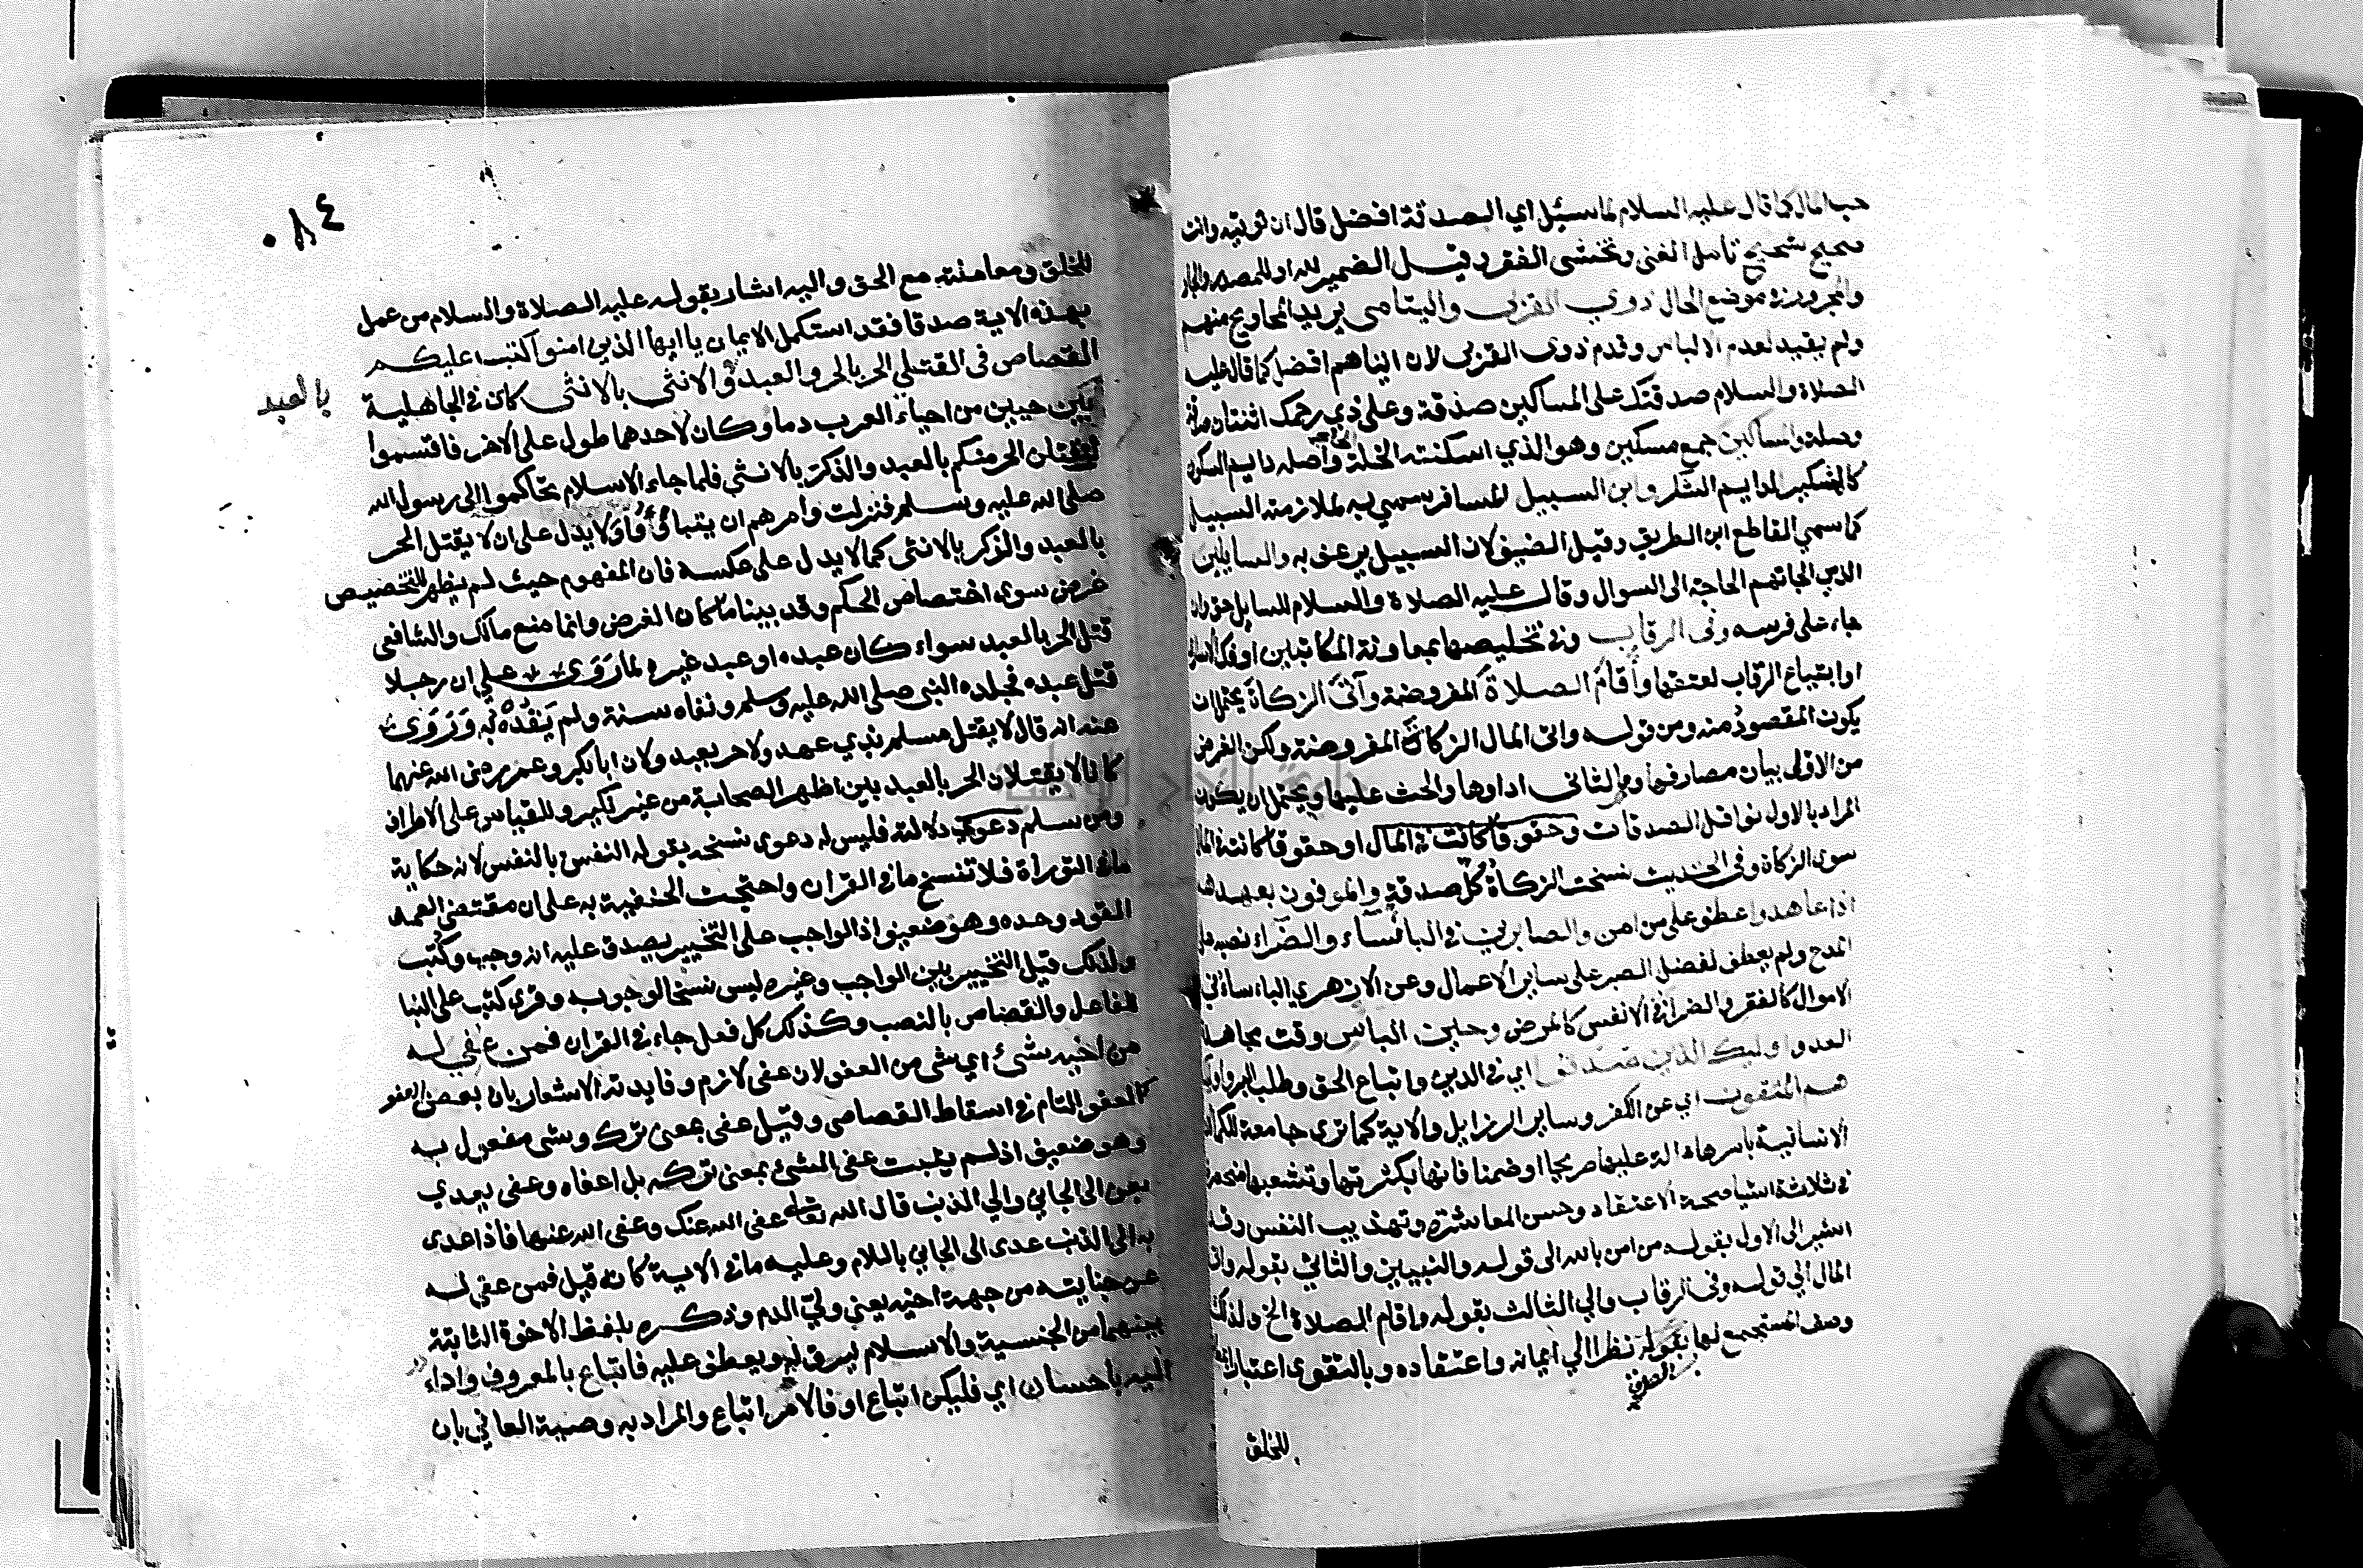 حب المال كما قال عليه السلام لما سئل اي الصدقة افضل قال ان تؤتيه وانت
صحيح شحيح تامل الغنى وتخشى الفقر وقيل الضمير لله او للمصدر والجار
والمجرور في موضع الحال ذوي القربى واليتامى يريد المحاويج منهم
ولم يقيد لعدم الالباس وقدم ذوى القربى لان ايتاهم افضل كما قال عليه
الصلاة والسلام صدقتك على المساكين صدقة وعلى ذي رحمك اثنتان صدقة
وصلة والمساكين جمع مسكين وهو الذي اسكنته الخلة واصله دايم السكون
كالمسكير لدايم السكر وابن السبيل المسافر سمي به لملازمته السبيل
كما سمي القاطع ابن الطريق وقيل الضيف لان السبيل يرعف به والسايلين
الذين الجاتهم الحاجة الى السوال وقال عليه الصلاة والسلام للسايل حق وان
جاء على فرسه وفى الرقاب وفي تخليصها بمعاونة المكاتبين او فك الاسارى
او ابتياع الرقاب لعتقها وأقام الصلاة المفروضة وآتى الزكاة يحتمل ان
يكون المقصود منه ومن قوله واتى المال الزكاة المفروضة ولكن الغرض
من الاولى بيان مصارفها والثانى اداوها والحث عليها ويحتمل ان يكون
المراد بالاول نوافل الصدقات وحقوقا كانت في المال او حقوقا كانت في المال
سوى الزكاة وفى الحديث نسخت الزكاة كل صدقة والموفون بعهدهم
اذا عاهدوا عطف على من امن والصابرين في البأساء والضراء نصبه على
المدح ولم يعطف لفضل الصبر على ساير الاعمال وعن الازهري الباساء في
الاموال كالفقر والضرا في الانفس كالمرض وحين الباس وقت مجاهدة
العدو اوليك الذين صدقوا اي في الدين واتباع الحق وطلب البر واوليك
هم المتقون اي عن الكفر وساير الرزايل والاية كما ترى جامعة للكمالات
الانسانية باسرها دالة عليها صريحا او ضمنا فانها بكثرتها وتشعبها منحصرة
في ثلاثة اشيا صحة الاعتقاد وحسن المعاشرة وتهذيب النفس وقد
اشير الى الاول بقوله من امن بالله الى قوله والنبيين والثاني بقوله واتى
المال الي قوله وفى الرقاب والي الثالث بقوله واقام الصلاة الخ ولذلك
وصف المستجمع لها بقوله نظرا الي ايمانه واعتقاده وبالتقوى اعتبارا
للخلق
٠٨٤
للخلق ومعاملته مع الحق واليه اشار بقوله عليه الصلاة والسلام من عمل
بهذه الاية صدقا فقد استكمل الايمان يا ايها الذين امنوا كتب عليكم
القصاص فى القتلي الحر بالحر والعبد و الانثى بالانثى كان في الجاهلية
بالعبد
بين حيين من احياء العرب دما وكان لاحدهما طول على الاخر فاقسموا
لنقتلن الحر منكم بالعبد والذكر بالانثي فلما جاء الاسلام تحاكموا الى رسول الله
صلى الله عليه وسلم فنزلت وامرهم ان يتباؤوا ولا يدل على ان لا يقتل الحر
بالعبد والذكر بالانثى كما لا يدل على عكسه فان المفهوم حيث لم يظهر للتخصيص
غرض سوى اختصاص الحكم وقد بينا ما كان الغرض وانما منع مالك والشافعى
قتل الحر بالعبد سواء كان عبده او عبد غيره لما روى علي ان رجلا
قتل عبده فجلده النبى صلى الله عليه وسلم ونفاه سنة ولم يقده به وروى
عنه انه قال لا يقتل مسلم بذي عهد ولا حر بعبد ولان ابا بكر وعمر رضى الله عنهما
كانا لا يقتلان الحر بالعبد بين اظهر الصحابة من غير نكير وللقياس على الاطراف
ومن سلم دعوى دلالته فليس له دعوى نسخه بقوله النفس بالنفس لانه حكاية
ما في التوراة فلا تنسخ ما في القران واحتجت الحنفية به على ان مقتضى العمد
القود وحده وهو ضعيف اذ الواجب على التخيير يصدق عليه انه وجب وكتب
ولذلك قيل التخيير بين الواجب وغيره ليس نسخا لوجوبه وقرى كتب على البنا
للفاعل والقصاص بالنصب وكذلك كل فعل جاء في القران فمن عفي له
من اخيه شئ اي شى من العفو لان عفى لازم وفايدته الاشعار بان بعض العفو
كالعفو التام في اسقاط القصاص وقيل عفى بمعنى ترك وشى مفعول به
وهو ضعيف اذ لم يثبت عفى الشئ بمعنى تركه بل اعفاه وعفى يعدي
بعن الى الجاني والي الذنب قال الله تعالى عفى الله عنك وعفى الله عنها فاذا عدى
به الى الذنب عدى الى الجاني باللام وعليه ما في الاية كانه قيل فمن عفي له
عن جنايته من جهة اخيه يعني ولي الدم وذكره بلفظ الاخوة الثابتة
بينهما من الجنسية والاسلام ليرق له ويعطف عليه فاتباع بالمعروف واداء
اليه باحسان اي فليكن اتباع او فالامر اتباع والمراد به وصية العافي بان